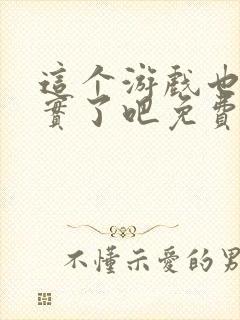 這个游戲也
實了吧免費
不懂示愛的男